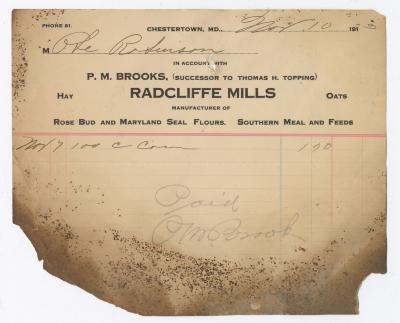 PHONE 81.
CHESTERTOWN, MD., Nov. 10 191
M Robinson
IN ACCOUNT WITH
P. M. BROOKS, (SUCCESSOR TO THOMAS H. TOPPING)
HAY RADCLIFFE MILLS OATS
MANUFACTURER OF
ROSE BUD AND MARYLAND SEAL FLOURS. SOUTHERN MEAL AND FEEDS
Nov 7 100 C Corn 1 90
Paid
P M Brooks